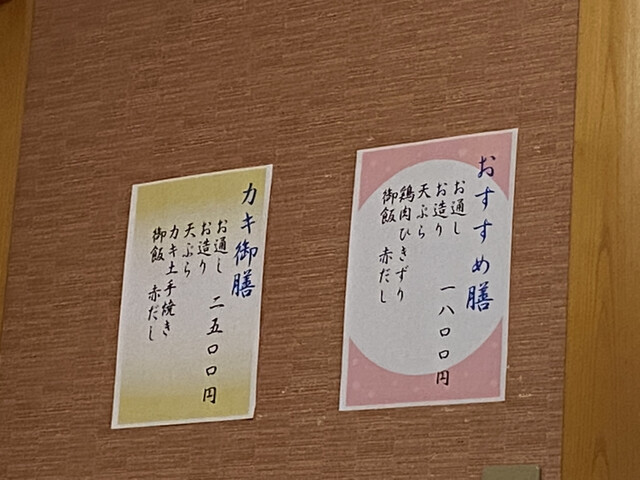 おすすめ膳
お通し
お造り 一八〇〇円
天ぷら
鶏肉ひきずり
御飯 赤だし
カキ御膳
お通し 二五〇〇円
お造り
天ぷら
カキ土手焼き
御飯 赤だし